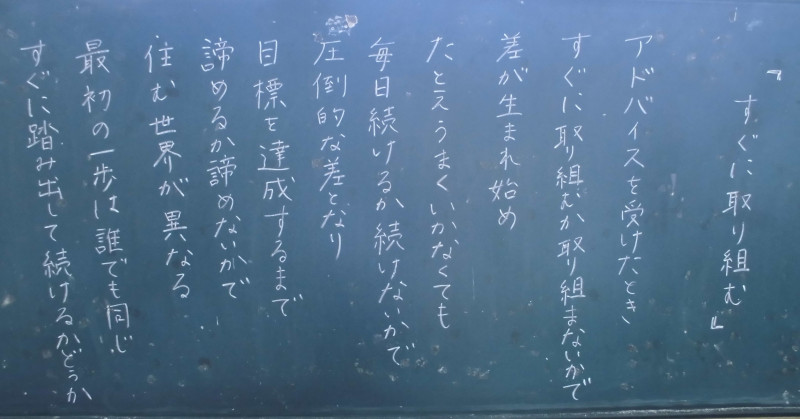 『すぐに取り組む』
アドバイスを受けたとき
すぐに取り組むか取り組まないかで
差が生まれ始め
たとえうまくいかなくても
毎日続けるか続けないかで
圧倒的な差となり
目標を達成するまで
諦めるか諦めないかで
住む世界が異なる
最初の一歩は誰でも同じ
すぐに踏み出して続けるかどうか